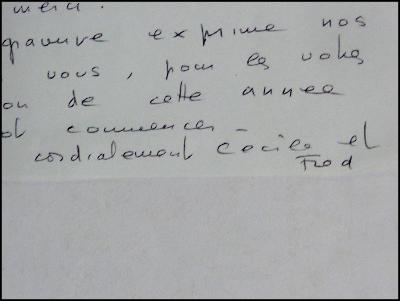 merci.
gravure exprime nos
vous, pour les votres
on de cette annee
et commencer
cordialement Cecile et
Fred